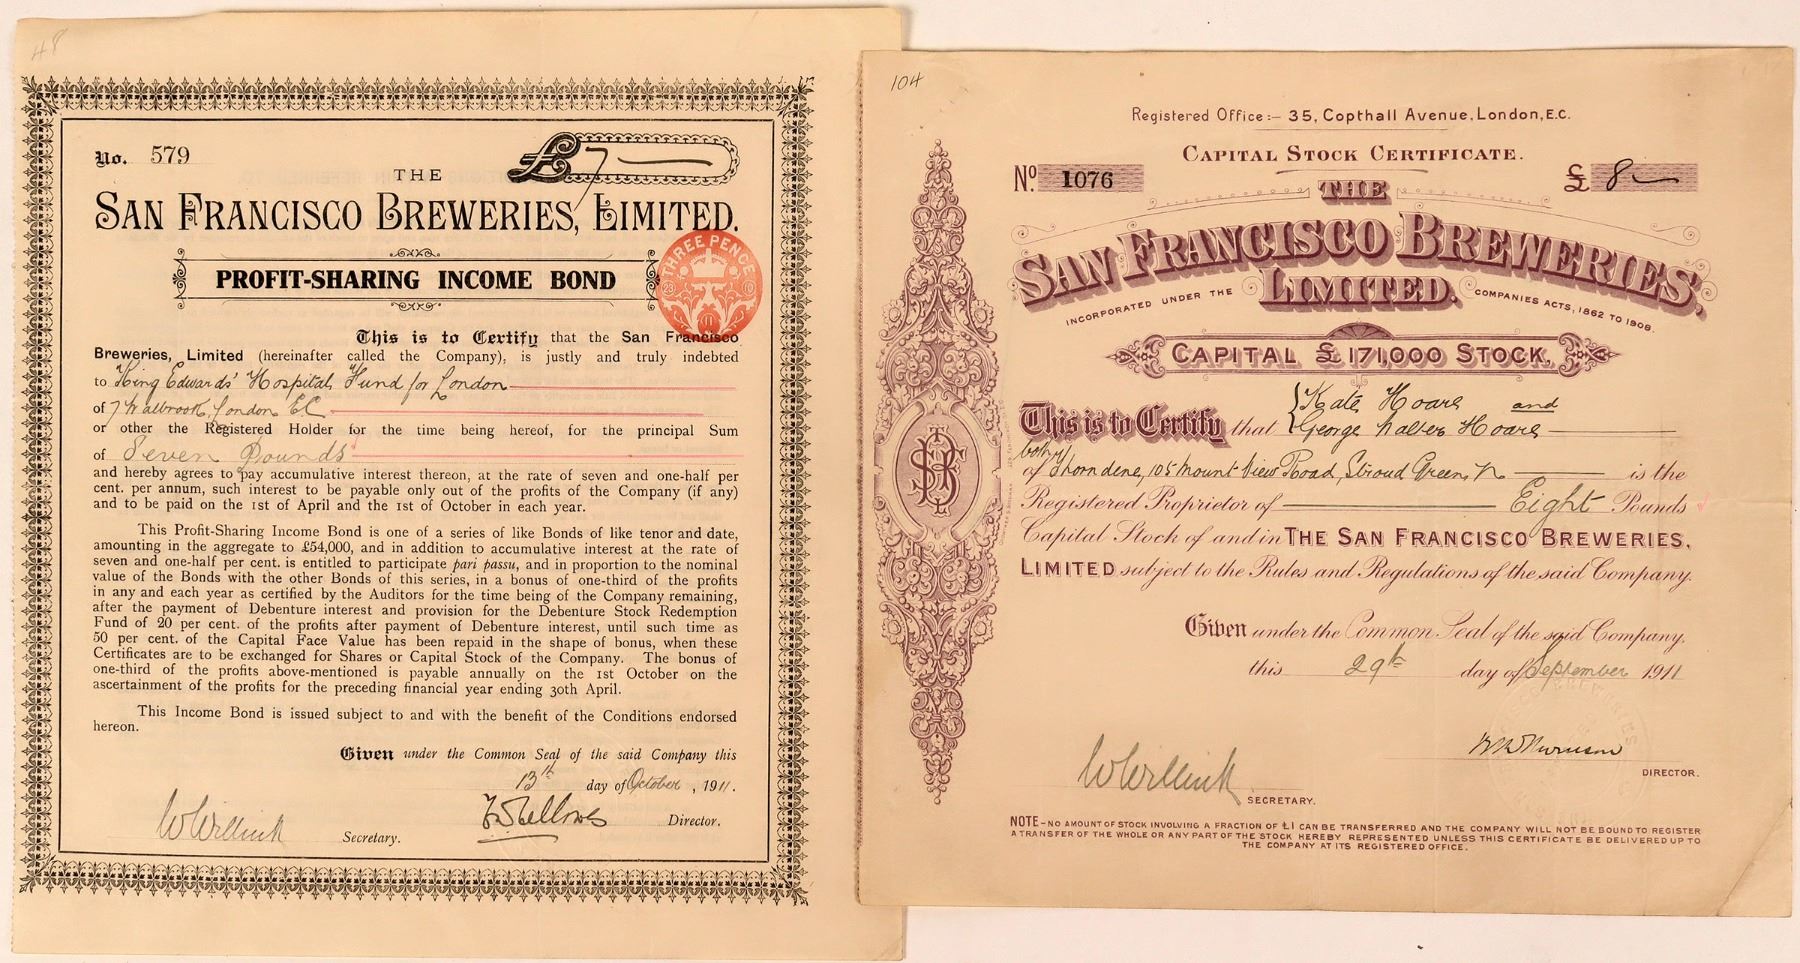 48
No. 579
£7
THE
SAN FRANCISCO BREWERIES, LIMITED.
PROFIT-SHARING INCOME BOND
THREE PENCE
23 10
11
This is to Certify that the San Francisco
Breweries, Limited (hereinafter called the Company), is justly and truly indebted
to King Edwards' Hospital Fund for London
of 7 Walbrook, London EC
or other the Registered Holder for the time being hereof, for the principal Sum
of Seven Pounds
and hereby agrees to pay accumulative interest thereon, at the rate of seven and one-half per
cent. per annum, such interest to be payable only out of the profits of the Company (if any)
and to be paid on the 1st of April and the 1st of October in each year.
This Profit-Sharing Income Bond is one of a series of like Bonds of like tenor and date,
amounting in the aggregate to £54,000, and in addition to accumulative interest at the rate of
seven and one-half per cent. is entitled to participate pari passu, and in proportion to the nominal
value of the Bonds with the other Bonds of this series, in a bonus of one-third of the profits
in any and each year as certified by the Auditors for the time being of the Company remaining,
after the payment of Debenture interest and provision for the Debenture Stock Redemption
Fund of 20 per cent. of the profits after payment of Debenture interest, until such time as
50 per cent. of the Capital Face Value has been repaid in the shape of bonus, when these
Certificates are to be exchanged for Shares or Capital Stock of the Company. The bonus of
one-third of the profits above-mentioned is payable annually on the 1st October on the
ascertainment of the profits for the preceding financial year ending 30th April.
This Income Bond is issued subject to and with the benefit of the Conditions endorsed
hereon.
Given under the Common Seal of the said Company this
13th day of October, 1911.
W Willink Secretary. Director.
104
Registered Office:– 35, Copthall Avenue, London, E.C.
CAPITAL STOCK CERTIFICATE.
No. 1076
£ 8
THE
SAN FRANCISCO BREWERIES,
LIMITED.
INCORPORATED UNDER THE COMPANIES ACTS, 1862 TO 1908.
CAPITAL £171,000 STOCK.
This is to Certify that Kate Hoare and
George Walter Hoare
both of Thorndene, 105 Mount View Road, Stroud Green, N is the
Registered Proprietor of Eight Pounds
Capital Stock of and in THE SAN FRANCISCO BREWERIES,
LIMITED subject to the Rules and Regulations of the said Company.
Given under the Common Seal of the said Company,
this 29th day of September 1911
W Willink SECRETARY.
DIRECTOR.
NOTE – NO AMOUNT OF STOCK INVOLVING A FRACTION OF £1 CAN BE TRANSFERRED AND THE COMPANY WILL NOT BE BOUND TO REGISTER
A TRANSFER OF THE WHOLE OR ANY PART OF THE STOCK HEREBY REPRESENTED UNLESS THIS CERTIFICATE BE DELIVERED UP TO
THE COMPANY AT ITS REGISTERED OFFICE.